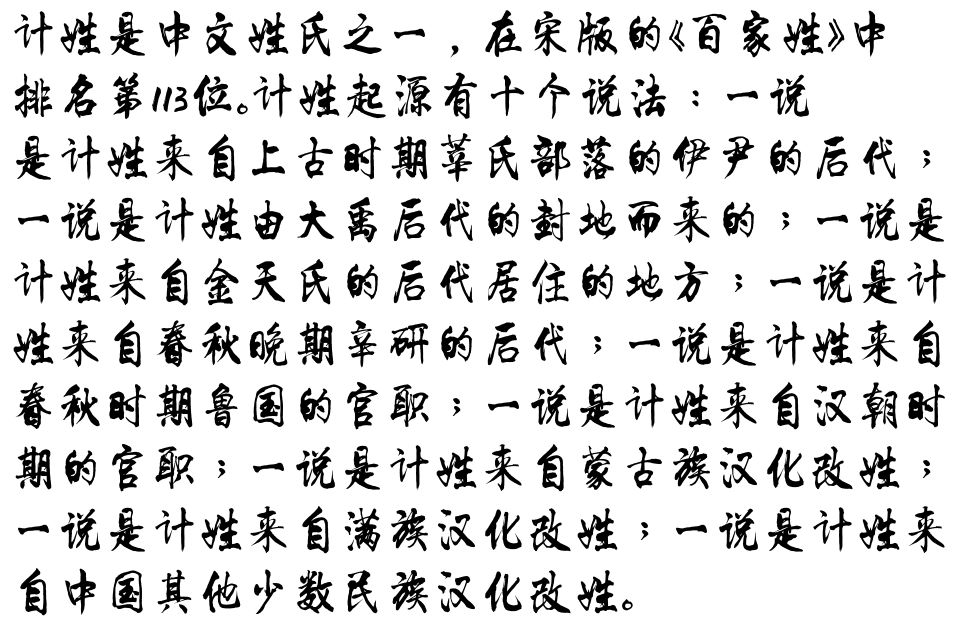 计姓是中文姓氏之一，在宋版的《百家姓》中
排名第113位。计姓起源有十个说法：一说
是计姓来自上古时期莘氏部落的伊尹的后代；
一说是计姓由大禹后代的封地而来的；一说是
计姓来自金天氏的后代居住的地方；一说是计
姓来自春秋晚期辛研的后代；一说是计姓来自
春秋时期鲁国的官职；一说是计姓来自汉朝时
期的官职；一说是计姓来自蒙古族汉化改姓；
一说是计姓来自满族汉化改姓；一说是计姓来
自中国其他少数民族汉化改姓。